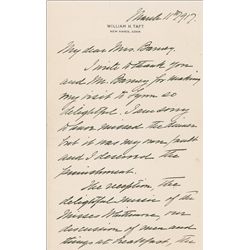 March 11th 1917.
WILLIAM H. TAFT.
NEW HAVEN, CONN.
My dear Mrs. Barney
I write to thank you
and Mr. Barney for making
my visit to you so
delightful. I am sorry
to have missed the dinner
but it was my own fault
and I deserved the
punishment.
The reception, the
delightful music of the
Misses, our
discussion of men and
things at breakfast, the